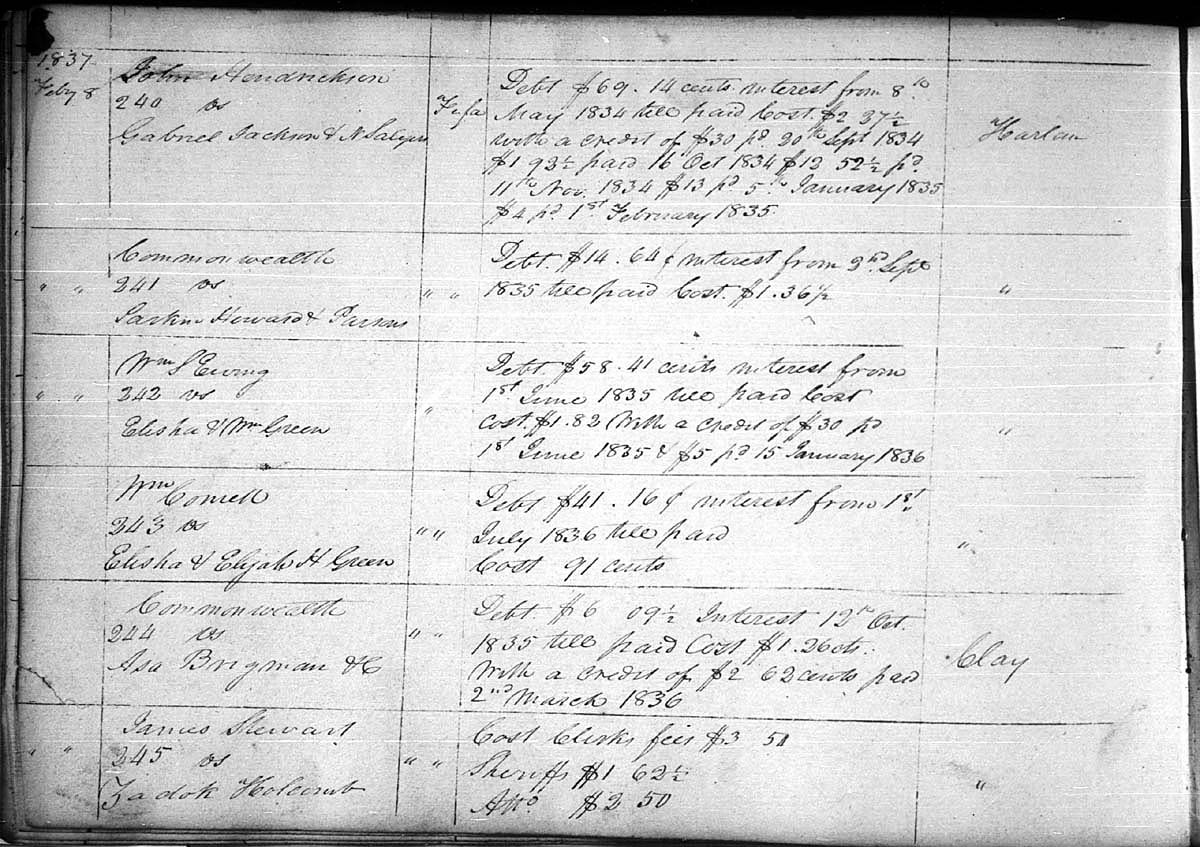 1837
Feby 8
John Hendrickson
240 vs
Gabriel Jackson & N Salyers
Fi fa
Debt $69. 14 cents interest from 8th
May 1834 till paid Cost. $2 37½
with a credit of $30 pd. 20th Sept 1834
$1 93½ paid 16 Oct 1834 $12 52½ pd.
11th Nov. 1834 $13 pd 5th January 1835
$4 pd 1st February 1835.
Harlan
" "
Commonwealth
241 vs
Howard & Parsons
" "
Debt. $14. 64 ¢ interest from Sept
1835 till paid Cost. $1. 36½
"
" "
Wm S Ewing
242 vs
Elisha & Wm Green
"
Debt. $58. 41 cents interest from
1st June 1835 till paid Cost
cost. $1. 82 With a credit of $30 pd
1st June 1835 & $5 pd 15 January 1836
"
Wm
243 vs
Elisha & Elijah H Green
" "
Debt $41. 16 ¢ interest from 1st
July 1836 till paid
Cost 91 cents
"
Commonwealth
244 vs
Asa Brigman &C
" "
Debt. $6 09½ Interest 12th Oct.
1835 till paid Cost $1. 26cts.
With a credit of $2 62 cents paid
2nd March 1836
Clay
" "
James Stewart
245 vs
Zadok Holcomb
" "
Cost Clerks fees $3 51
Sheriffs $1 62½
Atto $2 50
"